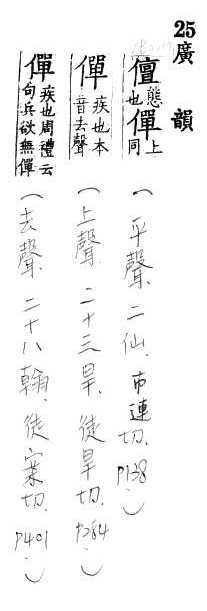 25 廣韻
儃態也僤上同（平聲、二仙、市連切、P138.）
僤疾也本音去聲（上聲、二十三旱、徒旱切、P284.）
僤疾也周禮云句兵欲無僤（去聲、二十八翰、徒案切、P401.）